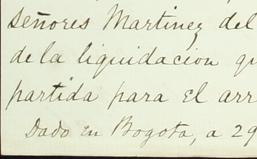 señores Martinez del
de la liquidacion qu
partida para el arr
Dado en Bogota, a 29